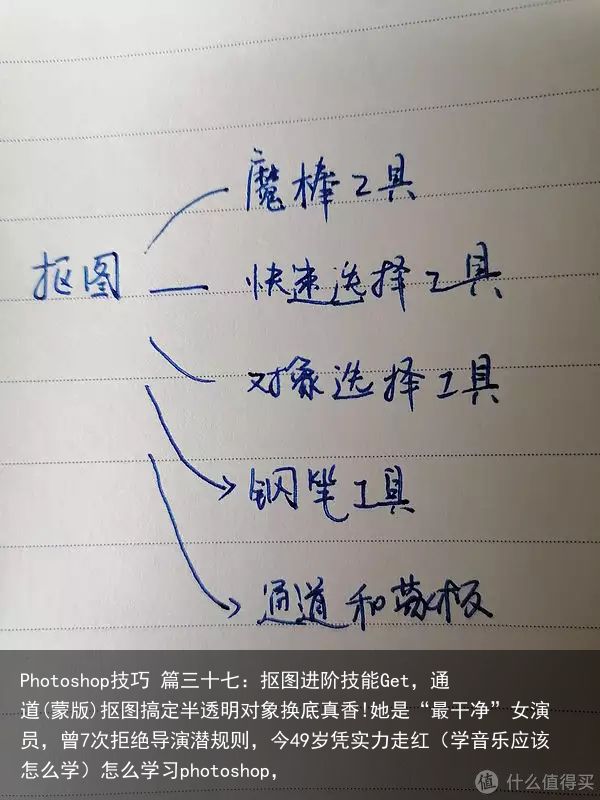 魔棒工具
抠图
快速选择工具
对象选择工具
钢笔工具
通道和蒙板
Photoshop技巧 篇三十七：抠图进阶技能Get，通
道(蒙版)抠图搞定半透明对象换底真香!她是“最干净”女演
员，曾7次拒绝导演潜规则，今49岁凭实力走红（学音乐应该
怎么学）怎么学习photoshop，
值 什么值得买